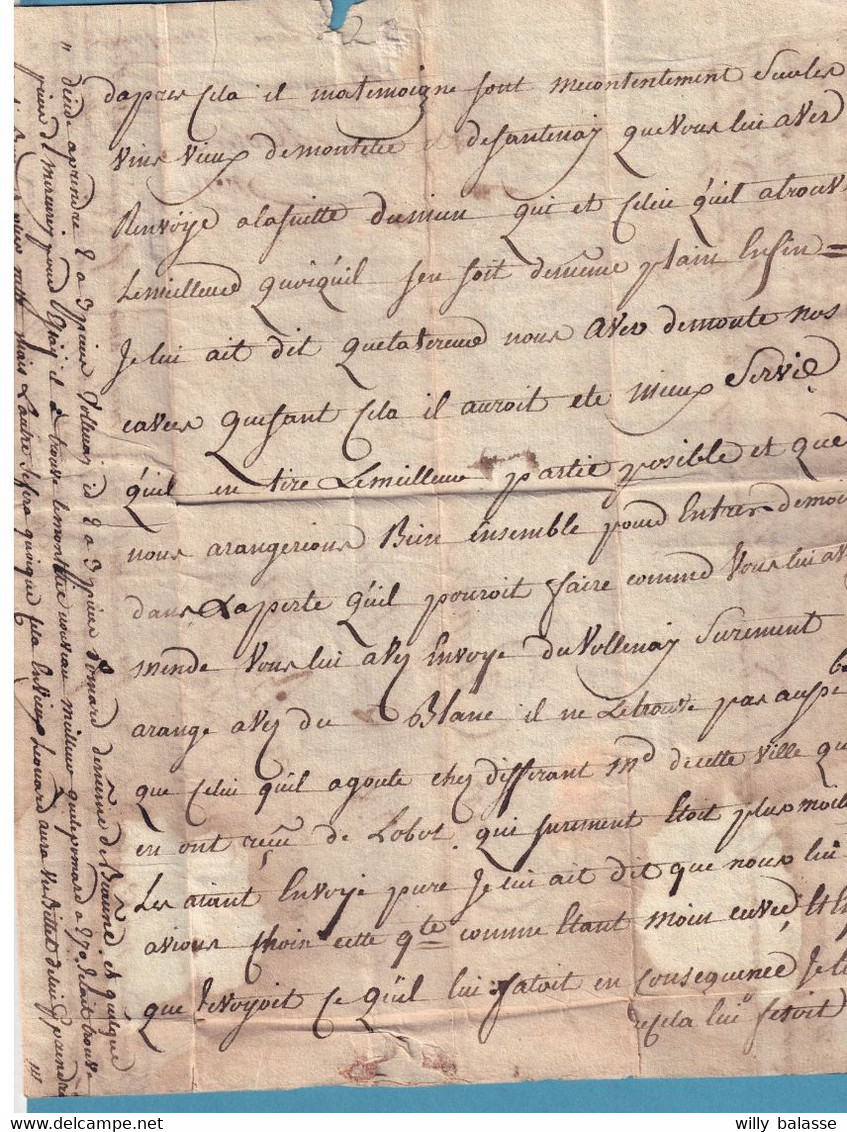 dapres Cela il matemoigne sont mecontentement Surles
vins vieux demontelie et desantenay que Vous lui aves
Renvoÿé alasuitte dumien qui et Celui qu'il atrouvé
Lemeilleure quoiqu'il sen soit dememe plain Enfin =
Je lui ait dit quelatereure nous avoit demonté nos
caves quesant Cela il auroit eté mieux Servie
qu'il en tire Lemeilleure partie posible et que
nous arangerions Bien ensemble poure Entrer demoi
dans Laperte qu'il pouroit faire comme Vous lui av
mende Vous lui avez Envoyé du Vollenay Surement
arangé avez du Blanc il ne Letrouve pas ausse b
que Celui quil agouté chez differant md decette Ville qu
en ont reçue de Lobot qui surement Etoit plus moil
Les aiant Envoyé pure Je lui ait dit que nous lui
avions choisi cette qte comme Etant moin cuvée, Et
que Jevoyoit Ce qu'il lui faloit en consequence Je l
cela lui fesoit
" deide aprendre 2 a 3 pieces Vollenay id 2 a 3 pieces Pomard dememe de Beaune et quelque
pieces de mercurey poure Essay il a trouvé lemontelie nouveau meilleure quelepomard a 270 Jelait trouvé
mais Lautre sefera quoique cela Enview Leonard aura un Billet delui
willy balasse